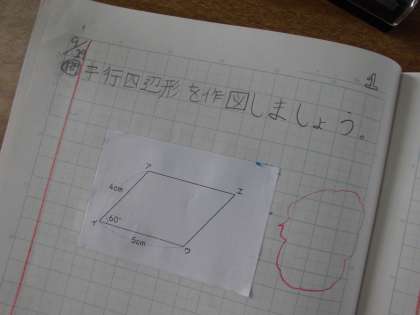 1
9/29
問 平行四辺形を作図しましょう。
ア
4cm
エ
イ 60°
5cm
ウ